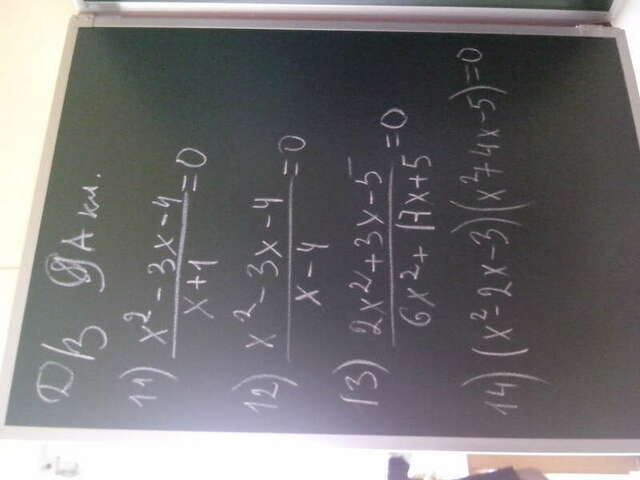 Д/З 9 А кл.
11) (x² - 3x - 4)/(x + 1) = 0
12) (x² - 3x - 4)/(x - 4) = 0
13) (2x² + 3x - 5)/(6x² + 17x + 5) = 0
14) (x² - 2x - 3)(x² + 4x - 5) = 0